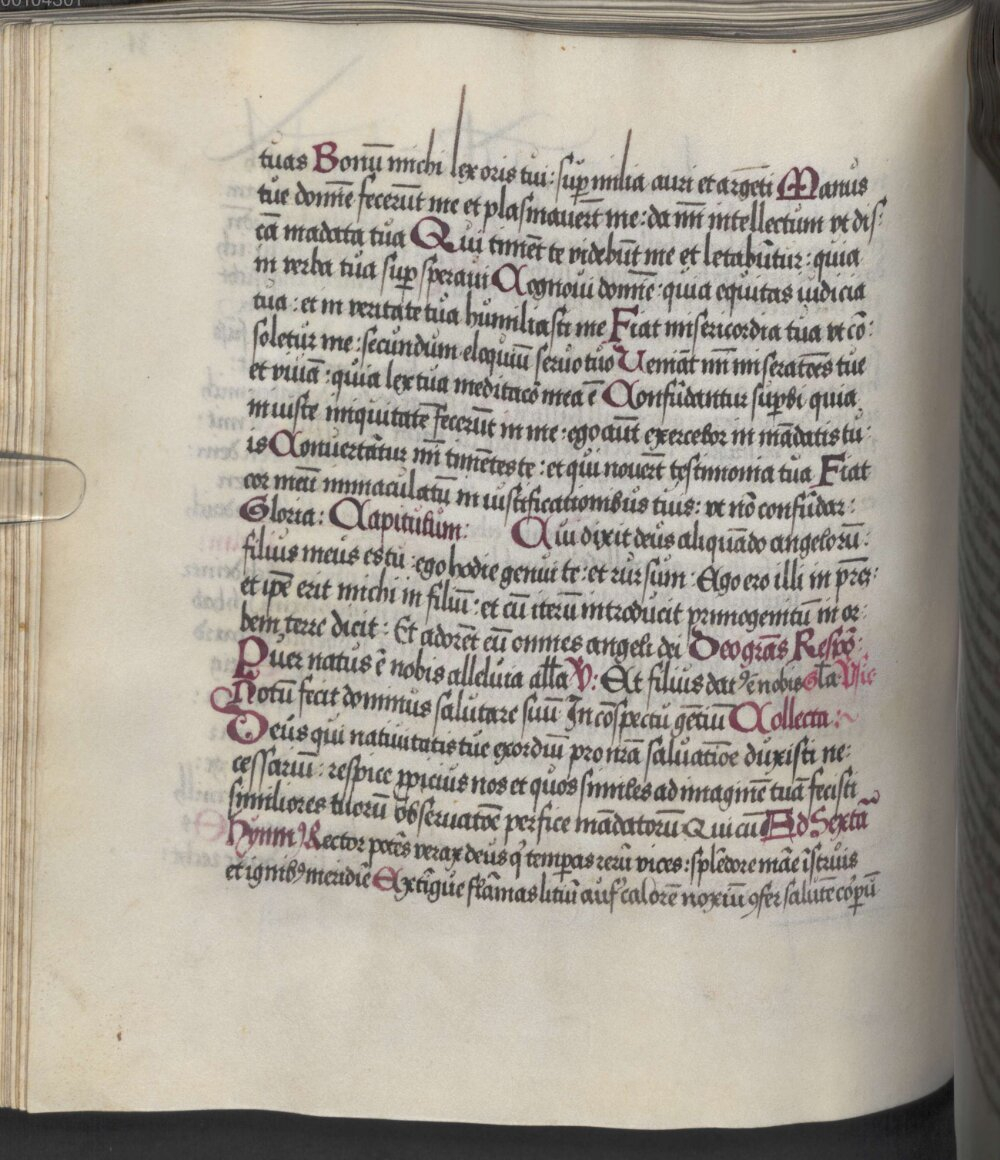 tuas Bonū michi lex oris tui : sup milia auri et argēti Manus
tue domīe fecerūt me et plasmauerūt me : da m̄ intellectum vt dis⸗
cā mādata tua Qui timēt te videbūt me et letabūtur : quia
in verba tua sup speraui Cognoui domīe : quia equitas iudicia
tua : et in veritate tua humiliasti me Fiat misericordia tua vt cō⸗
soletur me : secundum eloquiū seruo tuo Ueniāt m̄ miseratōes tue
et viuā : quia lex tua meditacō mea ē Confūdantur supbi quia
iniuste iniquitatē fecerūt in me : ego aūt exercebor in mādatis tu⸗
is Conuertātur m̄ timētes te : et qui nouerūt testimonia tua Fiat
cor meū immaculatū in iustificationibus tuis : vt nō confūdar :
Gloria : Capitulum : Cui dixit deus aliquādo angelorū :
filius meus es tu : ego hodie genui te : et rursum : Ego ero illi in prēs :
et ipē erit michi in filiū : et cū iterū introducit primogenitū in or⸗
bem terre dicit : Et adorēt eū omnes angeli dei Deo grās Respō :
Puer natus ē nobis alleluia allā V : Et filius datꝰ ē nobis Glā Vsic
Notū fecit dominus salutare suū In cōspectu gētiū Collecta :
Deus qui natiuitatis tue exordiū pro nrā saluatiōe duxisti ne⸗
cessariū : respice ppicius nos et quos similes ad imaginē tuā fecisti
similiores tuorū obseruatōe perfice mādatorū Qui cū Ad Sextā
Hymnꝰ Rector potēs verax deus q̄ temperas rerū vices : splēdore māe īstruis
et ignibꝰ meridiē Extīgue flāmas litiū aufꝰ calorē noxiū ꝯfer salutē corpū